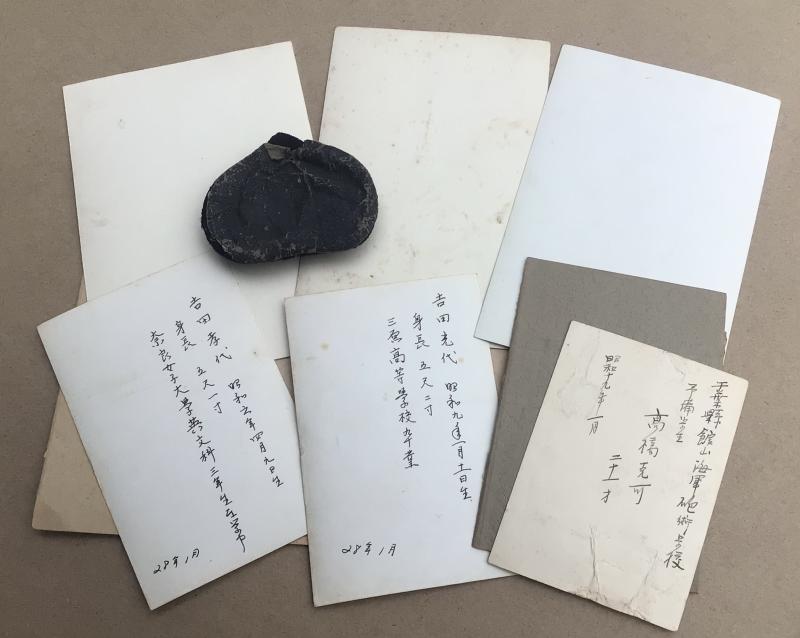 吉田孝代 昭和六年四月九日生
身長 五尺一寸
奈良女子大学英文科三年生在学中
28年1月
吉田克代 昭和九年一月十一日生
身長 五尺二寸
高等学校卒業
28年1月
千葉縣館山海軍砲術学校
高橋克
二十一才
昭和十九年一月